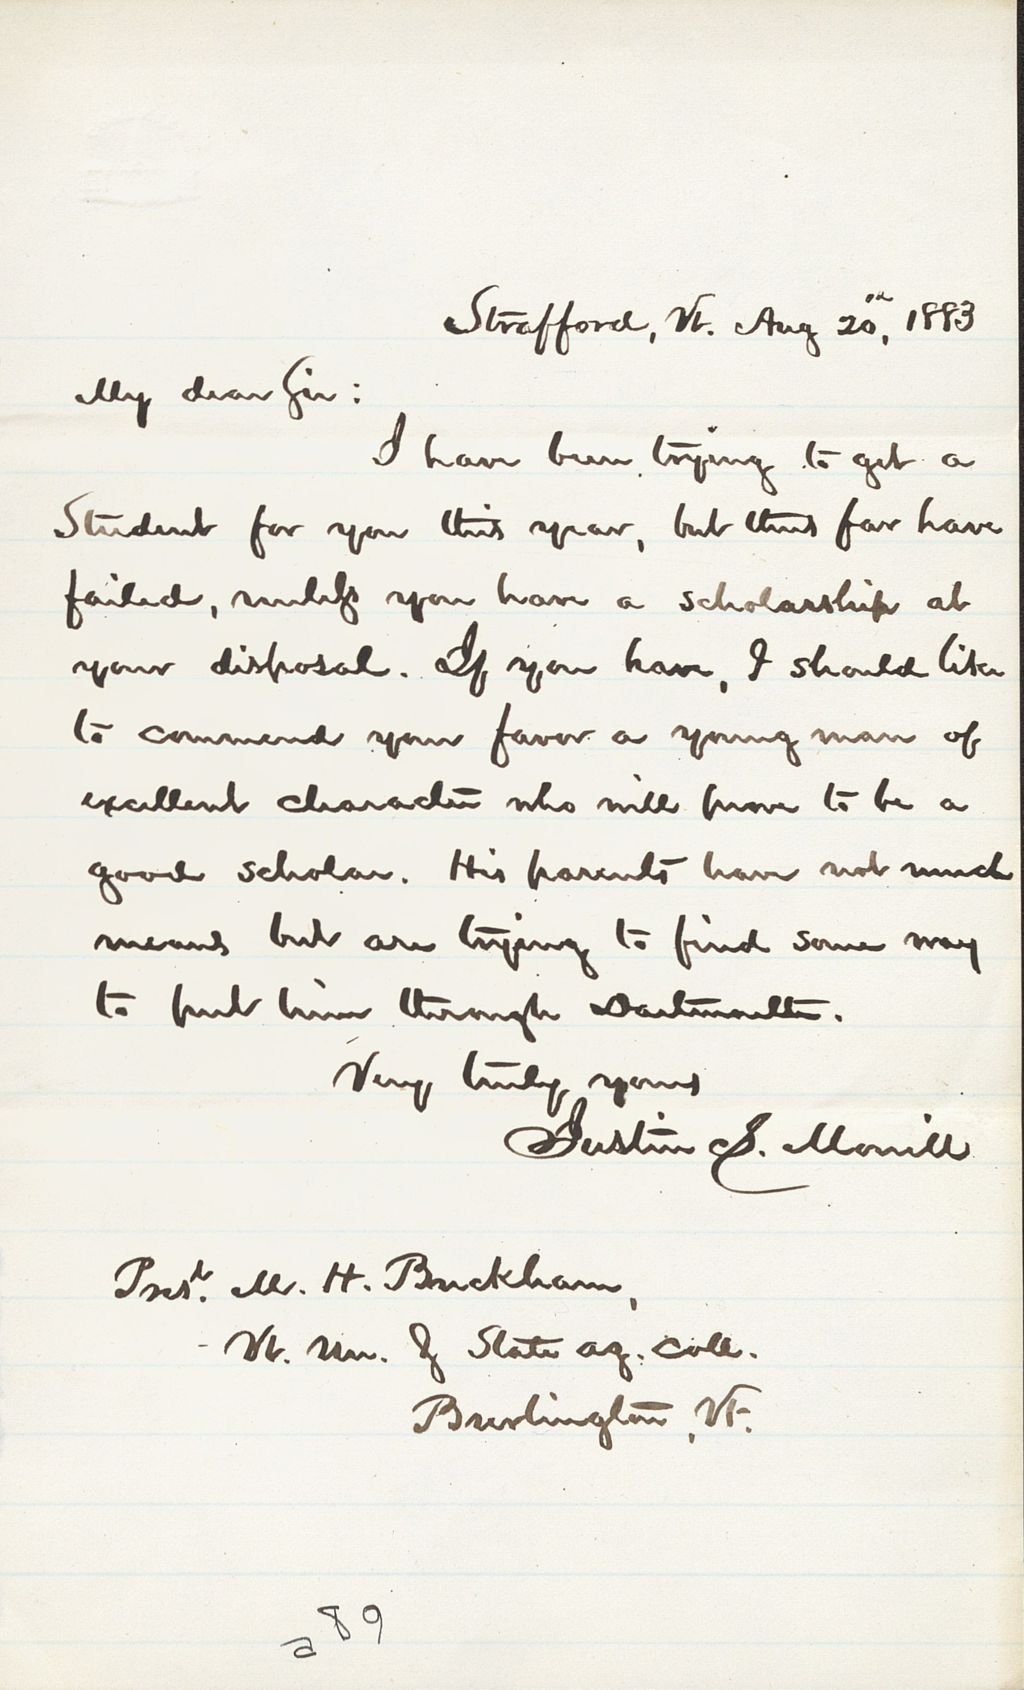 Strafford, Vt. Aug 20th, 1883
My dear Sir:
I have been trying to get a
Student for you this year, but thus far have
failed, unless you have a scholarship at
your disposal. If you have, I should like
to commend your favor a young man of
excellent character who will prove to be a
good scholar. His parents have not much
means but are trying to find some way
to put him through Dartmouth.
Very truly yours
Justin S. Morrill
Prest. M. H. Buckham,
Vt. Un. & State Ag. Coll.
Burlington, Vt.
a89